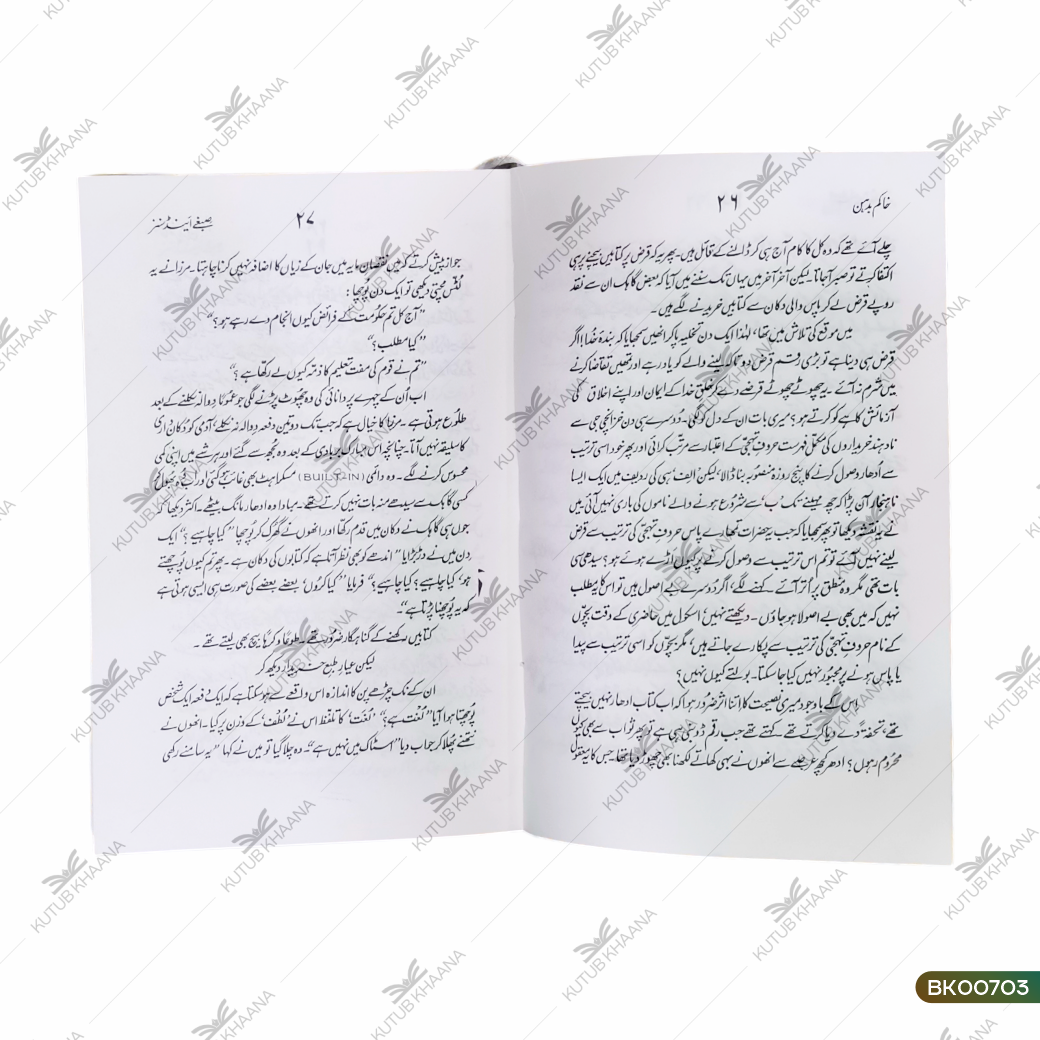 خاکم بدہن
۲۶
چلے آئے تھے کہ وہ کل کا کام آج ہی کر ڈالنے کے قائل ہیں۔ پھر یہ کہ قرض پر کتابیں بیچنے پر ہی
اکتفا کرتے تو صبر آجاتا۔ لیکن آخر آخر میں یہاں تک سننے میں آیا کہ بعض گاہک ان سے نقد
روپے قرض لے کر پاس والی دکان سے کتابیں خریدنے لگے ہیں۔
میں موقع کی تلاش میں تھا، لہٰذا ایک دن تخلیہ پا کر انھیں سمجھایا کہ بندۂ خدا! اگر
قرض ہی دینا ہے تو بڑی رقم قرض دو تاکہ لینے والے کو یاد رہے اور تمھیں تقاضا کرنے
میں شرم نہ آئے۔ یہ چھوٹے چھوٹے قرضے دے کر خلقِ خدا کے ایمان اور اپنے اخلاق کی
آزمائش کاہے کو کرتے ہو؟ میری بات ان کے دل کو لگی۔ دوسرے ہی دن خزانچی جی سے
نادہند خریداروں کی مکمل فہرست حروفِ تہجی کے اعتبار سے مرتب کرائی اور پھر خود اسی ترتیب
سے ادھار وصول کرنے کا پنج روزہ منصوبہ بنا ڈالا، لیکن الف ہی کی ردیف میں ایک ایسا
ناہنجار آن پڑا کہ چھ مہینے تک 'ب' سے شروع ہونے والے ناموں کی باری نہیں آئی۔ میں
نے یہ نقشہ دیکھا تو پھر سمجھایا کہ جب یہ حضرات تمھارے پاس حروفِ تہجی کی ترتیب سے قرض
لینے نہیں آئے تو تم اس ترتیب سے وصول کرنے پر کیوں اڑے ہوئے ہو؟ سیدھی سی
بات تھی مگر وہ منطق پر اُتر آئے۔ کہنے لگے، اگر دوسرے بے اصول ہیں تو اس کا یہ مطلب
نہیں کہ میں بھی بے اصولا ہو جاؤں۔ دیکھتے نہیں، اسکول میں حاضری کے وقت بچوں
کے نام حروفِ تہجی کی ترتیب سے پکارے جاتے ہیں، مگر بچوں کو اسی ترتیب سے پیدا
یا پاس ہونے پر مجبور نہیں کیا جا سکتا۔ بولتے کیوں نہیں؟
اس کے باوجود میری نصیحت کا اتنا اثر ضرور ہوا کہ اب کتاب ادھار نہیں بیچتے
تھے، تحفتہً دے دیا کرتے تھے۔ کہتے تھے جب رقم ڈوبنی ہی ہے تو پھر ثواب سے بھی کیوں
محروم رہوں؟ ادھر کچھ عرصے سے انھوں نے بہی کھاتے لکھنا بھی چھوڑ دیا تھا۔ جس کا یہ معقول
صبغے اینڈ سنز
۲۷
جواز پیش کرتے کہ میں نقصان مایہ میں جان کے زیاں کا اضافہ نہیں کرنا چاہتا۔ مرزا نے یہ
لُٹس مچتی دیکھی تو ایک دن پوچھا:
"آج کل تم حکومت کے فرائض کیوں انجام دے رہے ہو؟"
"کیا مطلب؟"
"تم نے قوم کی مفت تعلیم کا ذمہ کیوں لے رکھا ہے؟"
اب اُن کے چہرے پر دانائی کی وہ چھوٹ پڑنے لگی جو عموماً دِوالہ نکلنے کے بعد
طلوع ہوتی ہے۔ مرزا کا خیال ہے کہ جب تک دو تین دفعہ دِوالہ نہ نکلے آدمی کو دکان داری
کا سلیقہ نہیں آتا۔ چنانچہ اس مبارک بربادی کے بعد وہ بُجھ سے گئے اور ہر شے میں اپنی کمی
محسوس کرنے لگے۔ وہ دائمی (BUILT-IN) مسکراہٹ بھی غائب ہو گئی اور اب وہ بھول کر
کسی گاہک سے سیدھے منہ بات نہیں کرتے تھے۔ مبادا وہ ادھار مانگ بیٹھے۔ اکثر دیکھا کہ
جوں ہی گاہک نے دکان میں قدم رکھا اور انھوں نے گھُرک کر پوچھا "کیا چاہیے؟" ایک
دن میں نے دربڑایا "اندھے کو بھی نظر آتا ہے کہ کتابوں کی دکان ہے۔ پھر تم کیوں پوچھتے
ہو، کیا چاہیے؟ کیا چاہیے؟" فرمایا "کیا کروں، بعضے بعضے کی صورت ہی ایسی ہوتی ہے
کہ یہ پوچھنا پڑتا ہے"۔
کتابیں رکھنے کے گناہگار ضرور تھے۔ طوعاً و کرہاً بیچ بھی لیتے تھے۔
لیکن عیارِ طبعِ خریدار دیکھ کر
ان کے نک چڑھے پن کا اندازہ اس واقعے سے ہو سکتا ہے کہ ایک دفعہ ایک شخص
پوچھتا ہوا آیا "لُغت ہے؟" 'لُغت' کا تلفظ اس نے 'لُطف' کے وزن پر کیا۔ انھوں نے
نتھنے پھُلا کر جواب دیا "اسٹاک میں نہیں ہے"۔ وہ چلا گیا تو میں نے کہا "یہ سامنے رکھی
KUTUB KHAANA
BK00703